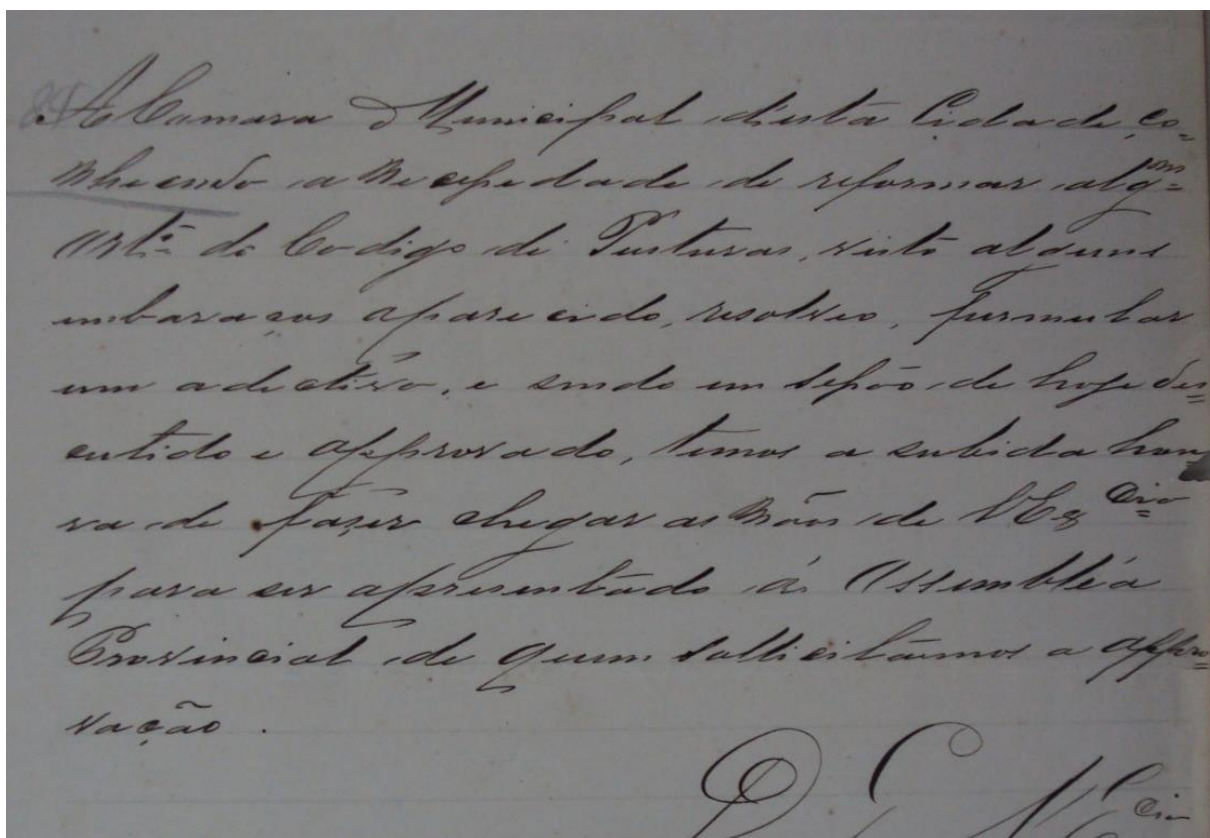 A Camara Municipal desta Cidade co=
nhecendo a necessidade de reformar alg.ns
Art.os do Codigo de Posturas, visto alguns
embaraços aparecido, resolveo, furmular
um adectivo, e sendo em sessão de hoje des=
cutido e approvado, temos a subida hon
ra de fazer chegar as mãos de V Ex.cia
para ser apresentado á Assembléa
Provincial de quem sollicitâmos a appro=
vação.